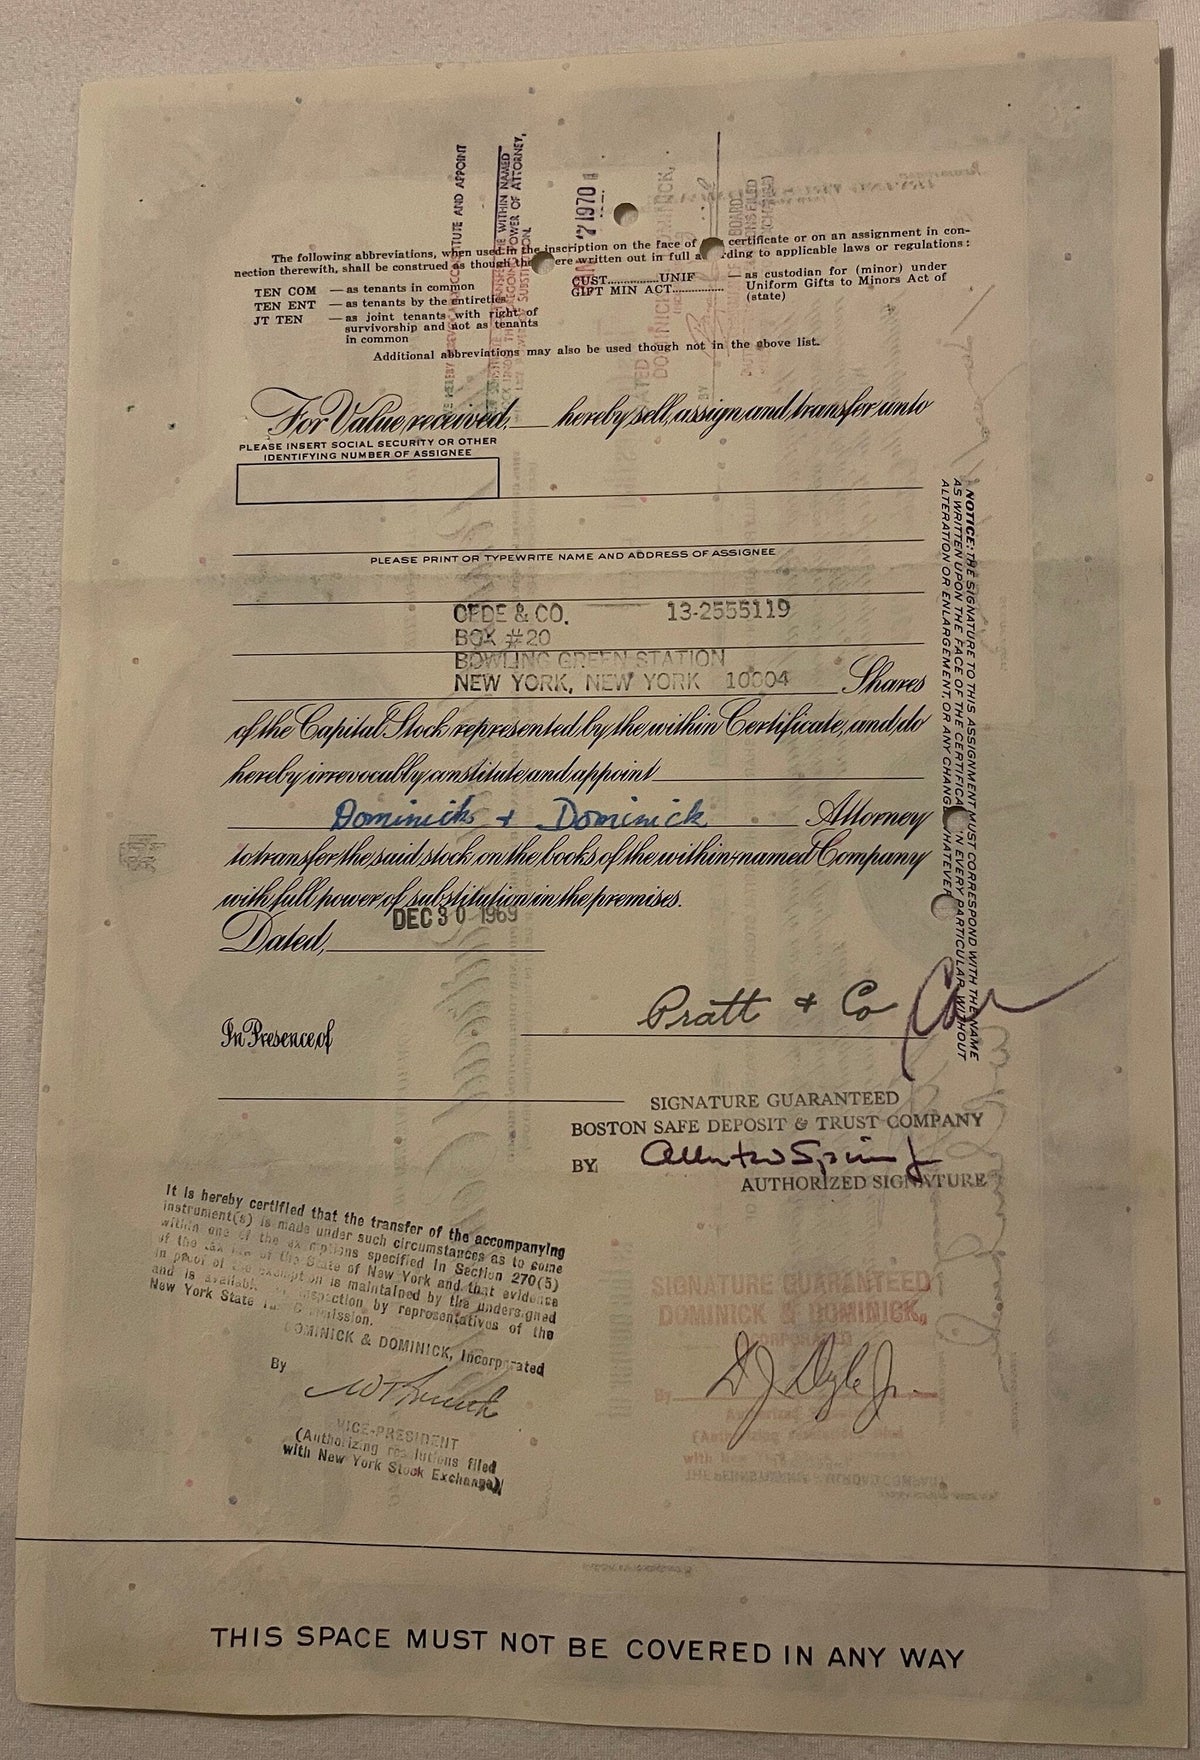 TUTE AND APPOINT
WITHIN NAMED
OWER OF ATTORNEY,
SUBSTITUTION.
7 1970
The following abbreviations, when used in the inscription on the face of certificate or on an assignment in con-
nection therewith, shall be construed as though were written out in full to applicable laws or regulations:
TEN COM — as tenants in common
TEN ENT — as tenants by the entireties
JT TEN — as joint tenants with right of
survivorship and not as tenants
in common
CUST..............UNIF
GIFT MIN ACT..............
— as custodian for (minor) under
Uniform Gifts to Minors Act of
(state)
Additional abbreviations may also be used though not in the above list.
For Value received, ___ hereby sell, assign and transfer unto
PLEASE INSERT SOCIAL SECURITY OR OTHER
IDENTIFYING NUMBER OF ASSIGNEE
PLEASE PRINT OR TYPEWRITE NAME AND ADDRESS OF ASSIGNEE
CEDE & CO. 13-2555119
BOX #20
BOWLING GREEN STATION
NEW YORK, NEW YORK 10004 Shares
of the Capital Stock represented by the within Certificate, and do
hereby irrevocably constitute and appoint
Dominick + Dominick Attorney
to transfer the said stock on the books of the within-named Company
with full power of substitution in the premises.
Dated, DEC 30 1969
NOTICE: THE SIGNATURE TO THIS ASSIGNMENT MUST CORRESPOND WITH THE NAME
AS WRITTEN UPON THE FACE OF THE CERTIFICATE IN EVERY PARTICULAR WITHOUT
ALTERATION OR ENLARGEMENT, OR ANY CHANGE WHATEVER
Pratt + Co
In Presence of
SIGNATURE GUARANTEED
BOSTON SAFE DEPOSIT & TRUST COMPANY
BY
AUTHORIZED SIGNATURE
It is hereby certified that the transfer of the accompanying
instrument(s) is made under such circumstances as to come
within one of the exemptions specified in Section 270(5)
of the tax law of the State of New York and that evidence
in proof of the exemption is maintained by the undersigned
and is available inspection by representatives of the
New York State Tax Commission.
DOMINICK & DOMINICK, Incorporated
By
VICE-PRESIDENT
(Authorizing resolutions filed
with New York Stock Exchange)
SIGNATURE GUARANTEED
DOMINICK & DOMINICK,
INCORPORATED
By D J Dyle Jr.
THIS SPACE MUST NOT BE COVERED IN ANY WAY